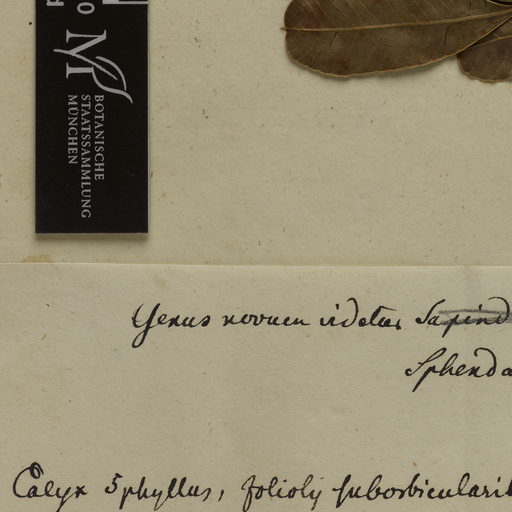 BOTANISCHE
STAATSSAMMLUNG
MÜNCHEN
Genus novum videtur Sapind
Sphenda
Calyx 5phyllus, foliolis suborbicularib